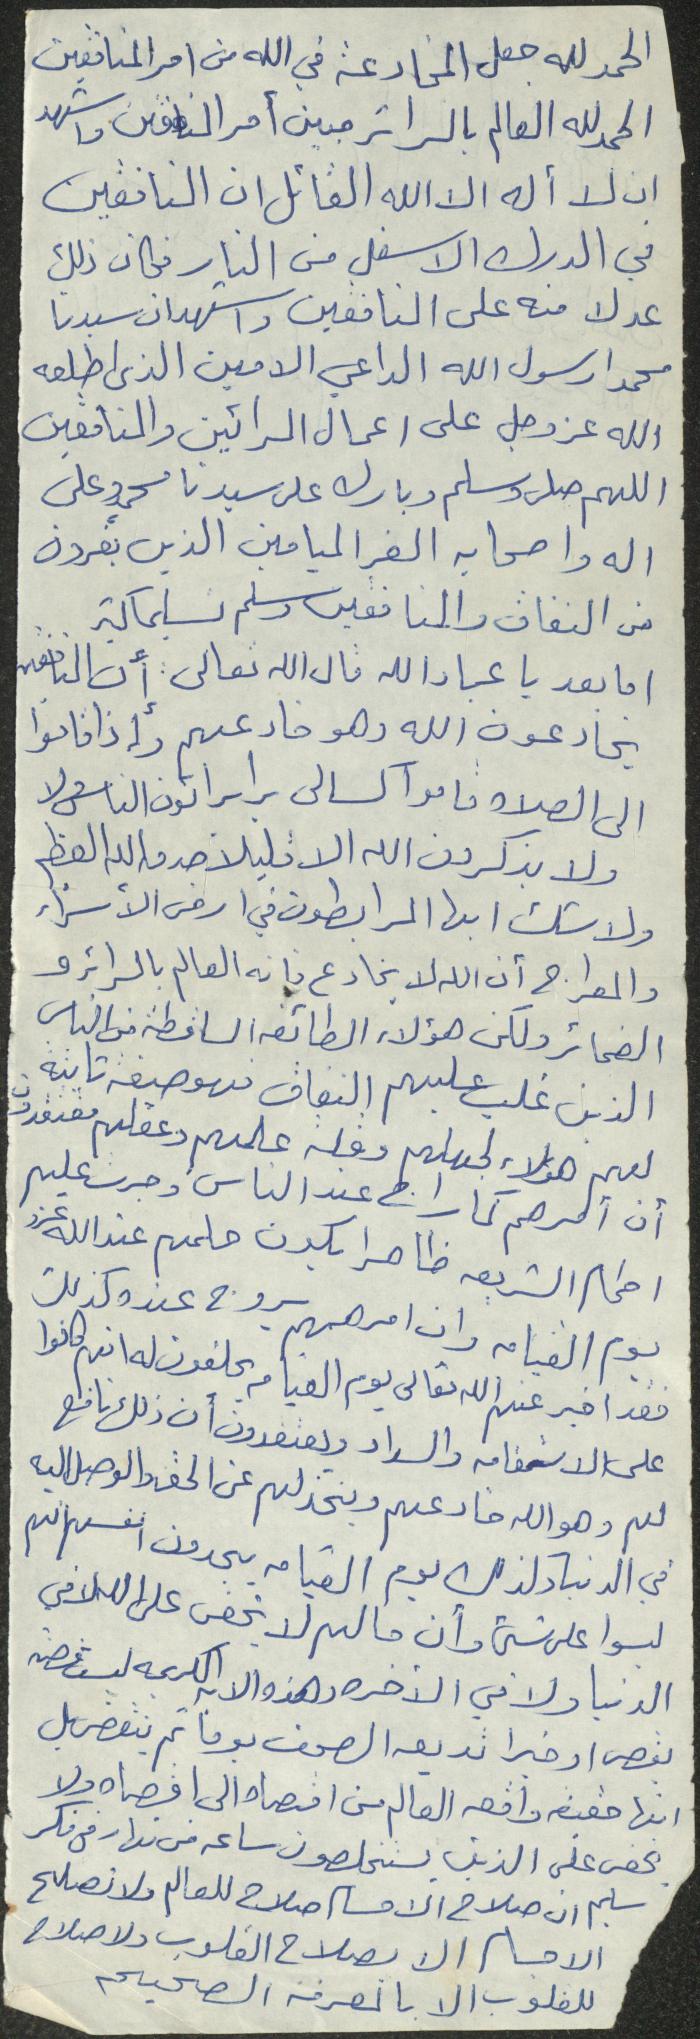 الحمد لله جعل المخادعة في الله من امر المنافقين
الحمد لله العالم بالسرائر مبين أمر المنافقين واشهد
ان لا أله الا الله القائل ان المنافقين
في الدرك الاسفل من النار فكان ذلك
عدلا منه على المنافقين واشهد ان سيدنا
محمدا رسول الله الداعي الامين الذي اطلعه
الله عز وجل على اعمال المرائين والمنافقين
اللهم صل وسلم وبارك على سيدنا محمد وعلى
اله واصحابه الغر الميامين الذين يفرون
من النفاق والمنافقين وسلم تسليما كثير
اما بعد يا عباد الله قال الله تعالى : أن المنافقين
يخادعون الله وهو خادعهم وأذا قاموا
الى الصلاه قاموا كسالى يراؤون الناس ولا
ولا يذكرون الله الا قليلا صدق الله العظيم
ولا شك ايها المرابطون في ارض الأسراء
والمعراج أن الله لا يخادع فانه العالم بالسرائر و
الضمائر ولكن هؤلاء الطائفه الساقطة من الناس
الذين غلب عليهم النفاق فهو صيغة ثابتة
لهم هؤلاء لجهلهم وقلة علمهم وعقلهم يعتقدون
أن أمرهم كما راج عند الناس وجرت عليهم
احكام الشريعه ظاهرا يكون حكمهم عند الله عز و
يوم القيامه وان امرهم يروج عنده كذلك
فقد اخبر عنهم الله تعالى يوم القيامه يحلفون له انهم كانوا
على الاستقامه والسداد ويعتقدون أن ذلك نافع
لهم وهو الله خادعهم ويخذلهم عن الحق والوصل اليه
في الدنيا وكذلك يوم القيامه يجدون انفسهم انهم
ليسوا على شيئ وأن حالهم لا يخفى على الله لا في
الدنيا ولا في الأخره وهذه الايه الكريمه ليست قصه
تقص او خبرا تذيعه الصحف يوما ثم ينقضي بل
انها حقيقه واقعه العالم من اقصاه الى اقصاه ولا
يخفى على الذين يستخلصون ساعه من نهار في فكر
سليم ان صلاح الاجسام صلاح للعالم ولا تصلح
الاجسام الا بصلاح القلوب ولا صلاح
للقلوب الا بالمعرفه الصحيحه